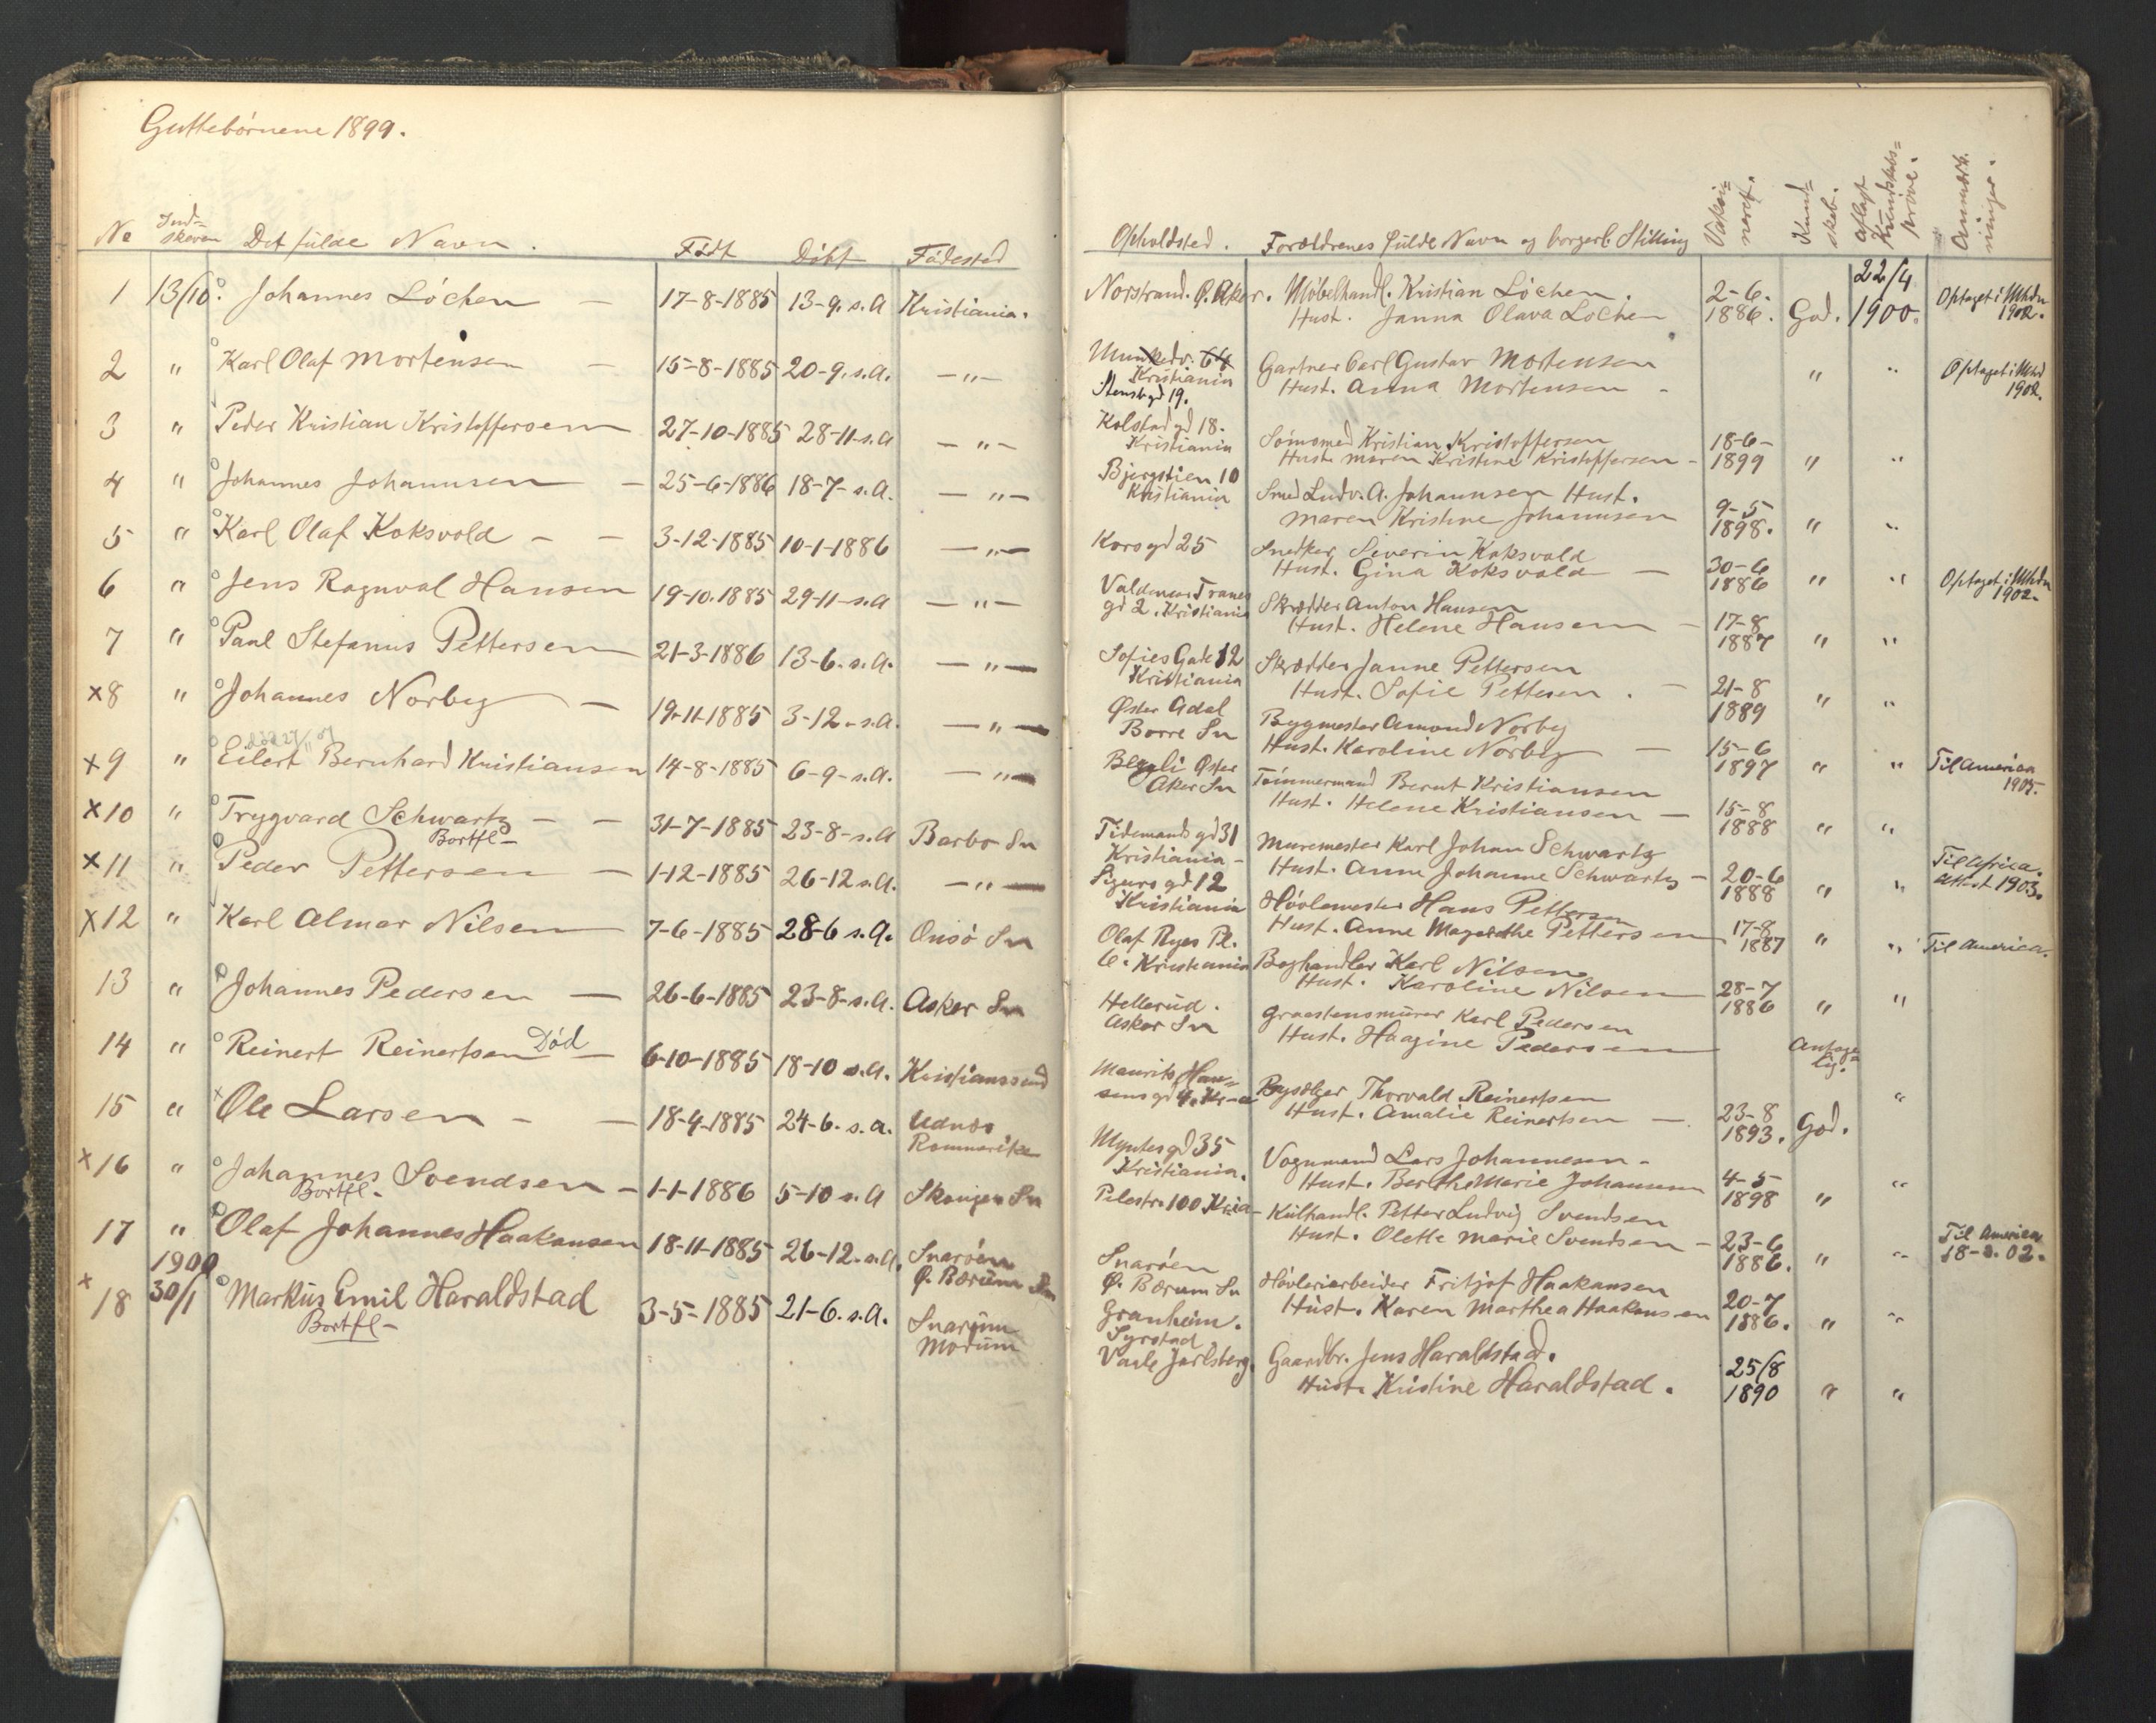 Guttebørnene 1899.
No Indskreven Det fulde Navn. Født Døbt Fødested
1 13/10. Johannes Løchen — 17-8-1885 13-9. s.A Kristiania.
2 " Karl Olaf Mortensen — 15-8-1885 20-9. s.A. —"—
3 " Peder Kristian Kristoffersen 27-10-1885 28-11-s.A —"—
4 " Johannes Johannsen — 25-6-1886 18-7-s.A. —"—
5 " Karl Olaf Koksvold — — 3-12-1885 10-1-1886 —"—
6 " Jens Ragnval Hansen 19-10.1885 29-11-s.A —"—
7 " Paul Stefanus Pettersen 21-3-1886 13-6. s.A. —"—
x8 " Johannes Norbey — 19-11-1885 3-12-s.A. —"—
x9 " Eilert Bernhard Kristiansen 14-8-1885 6-9-s.A. —"—
x10 " Trygvard Schwartz — — 31-7-1885 23-8-s.A Barbo Sn
Bortfl-
x11 " Peder Pettersen — 1-12-1885 26-12 s.A. —"—
x12 " Karl Almar Nilsen 7-6-1885 28-6 s.A. Onsö Sn
13 " Johannes Pedersen — 26-6-1885 23-8-s.A. Asker Sn
14 " Reinert Reinertsen Död — 6-10-1885 18-10 s.A. Kristianssund
15 " x Ole Larsen — — 18-4-1885 24-6. s.a. Udnæs
Rommerike
x16 " Johannes Svendsen — 1-1-1886 5-10 s.A Skauger Sn
Bortfl-
17 " Olaf Johannes Haakansen 18-11-1885 26-12-s.A. Snarøen
Ø. Bærum Sn
1900
x18 30/1 Markus Emil Haraldstad 3-5-1885 21-6. s.A. Snarum
Modum
Bortfl-
Opholdsted. Forældrenes fulde Navn og borgerl. Stilling Vaksineret. Kundskab. Aflagt Kundskabsprøve. Anmærkninger.
Norstrand. Ø. Aker. Møbelhandl. Kristian Løchen. 2-6- 22/4 Optaget i Mhdn
Hust. Janna Olava Løchen 1886. God. 1900. 1902.
Munkedv. 64
Kristiania
Stensbgd 19.
Gartner Carl Gustav Mortensen
Hust. Anna Mortensen - " " Optaget i Mhd
1902.
Kolstad gd 18.
Kristiania
Sømsmed Kristian Kristoffersen 18-6-
Hust. Maren Kristine Kristoffersen - 1899 " "
Bjergstien 10
Kristiania
Smed Ludv. A. Johannsen Hust.
Maren Kristine Johannsen 9-5
1898. " "
Korsgd 25
Snedker Siverin Koksvold
Hust. Gina Koksvold — 30-6
1886 " " Optaget i Mhdn
1902.
Valdemar Tranes
gd 2. Kristiania
Skrædder Anton Hansen
Hust. Helene Hansen — 17-8
1887 " "
Sofies Gade 12
Kristiania
Skrædder Janne Pettersen
Hust. Sofie Pettersen. — 21-8
1889 " "
Øster Adal
Borre Sn
Bygmester Amond Norbey
Hust. Karoline Norbey — 15-6
1897 " " Til America
1905.
Øster
Aker Sn
Tømmermand Bernt Kristiansen
Hust. Helene Kristiansen — 15-8
1888 " "
Tidemands gd 31
Kristiania-
Muremester Karl Johan Schwartz
Hust. Anne Johanne Schwartz — 20-6
1888 " " Til Africa.
Attest 1903.
Sigurs gd 12
Kristiania
Høvlemester Hans Pettersen
Hust. Anne Magrethe Pettersen 17-8
1887 " " Til America.
Olaf Ryes Pl.
6. Kristiania
Boghandler Karl Nilsen
Hust. Karoline Nilsen 28-7
1886 " "
Hellerud.
Asker Sn
Graastensmurer Karl Pedersen
Hust. Haagine Pedersen Antagelig. "
Maurits Hansens gd 4. Kr-a
Thorvald Reinertsen
Hust. Amalie Reinertsen — 23-8
1893. God.
Myntes gd 35
Kristiania.
Vognmand Lars Johannesen -
Hust. Berthe Marie Johannesen 4-5
1898 " "
Pilestr. 100 Kria-
Kulhandl. Petter Ludvig Svendsen
Hust. Olette Marie Svendsen — 23-6
1886. " " Til America
18-3. 02.
Snarøen
Ø. Bærum Sn
Høvleriarbeider Fritjof Haakansen
Hust. Karen Marthea Haakansen 20-7
1886. " "
Granheim.
Syrstad
Vaale Jarlsberg.
Gaardbr. Jens Haraldstad.
Hust. Kristine Haraldstad. 25/8
1890 " "